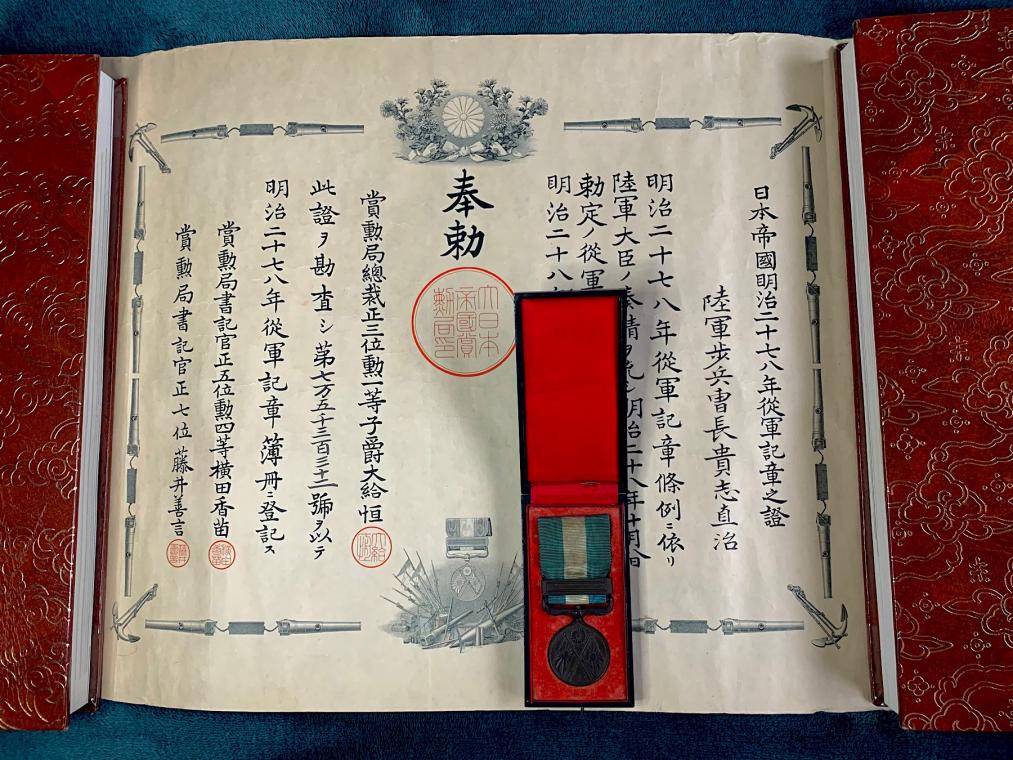 日本帝國明治二十七八年從軍記章之證
陸軍步兵曺長貴志直治
明治二十七八年從軍記章條例ニ依リ
陸軍大臣ノ奏請ヲ允シ明治二十八年十月
勅定ノ從軍
明治二十八
奉勅
大日本
帝國賞
勲局印
賞勲局總裁正三位勲一等子爵大給恒
此證ヲ勘査シ第七万五千三百三十二號ヲ以テ
明治二十七八年從軍記章簿册ニ登記ス
賞勲局書記官正五位勲四等横田香苗
賞勲局書記官正七位藤井善言